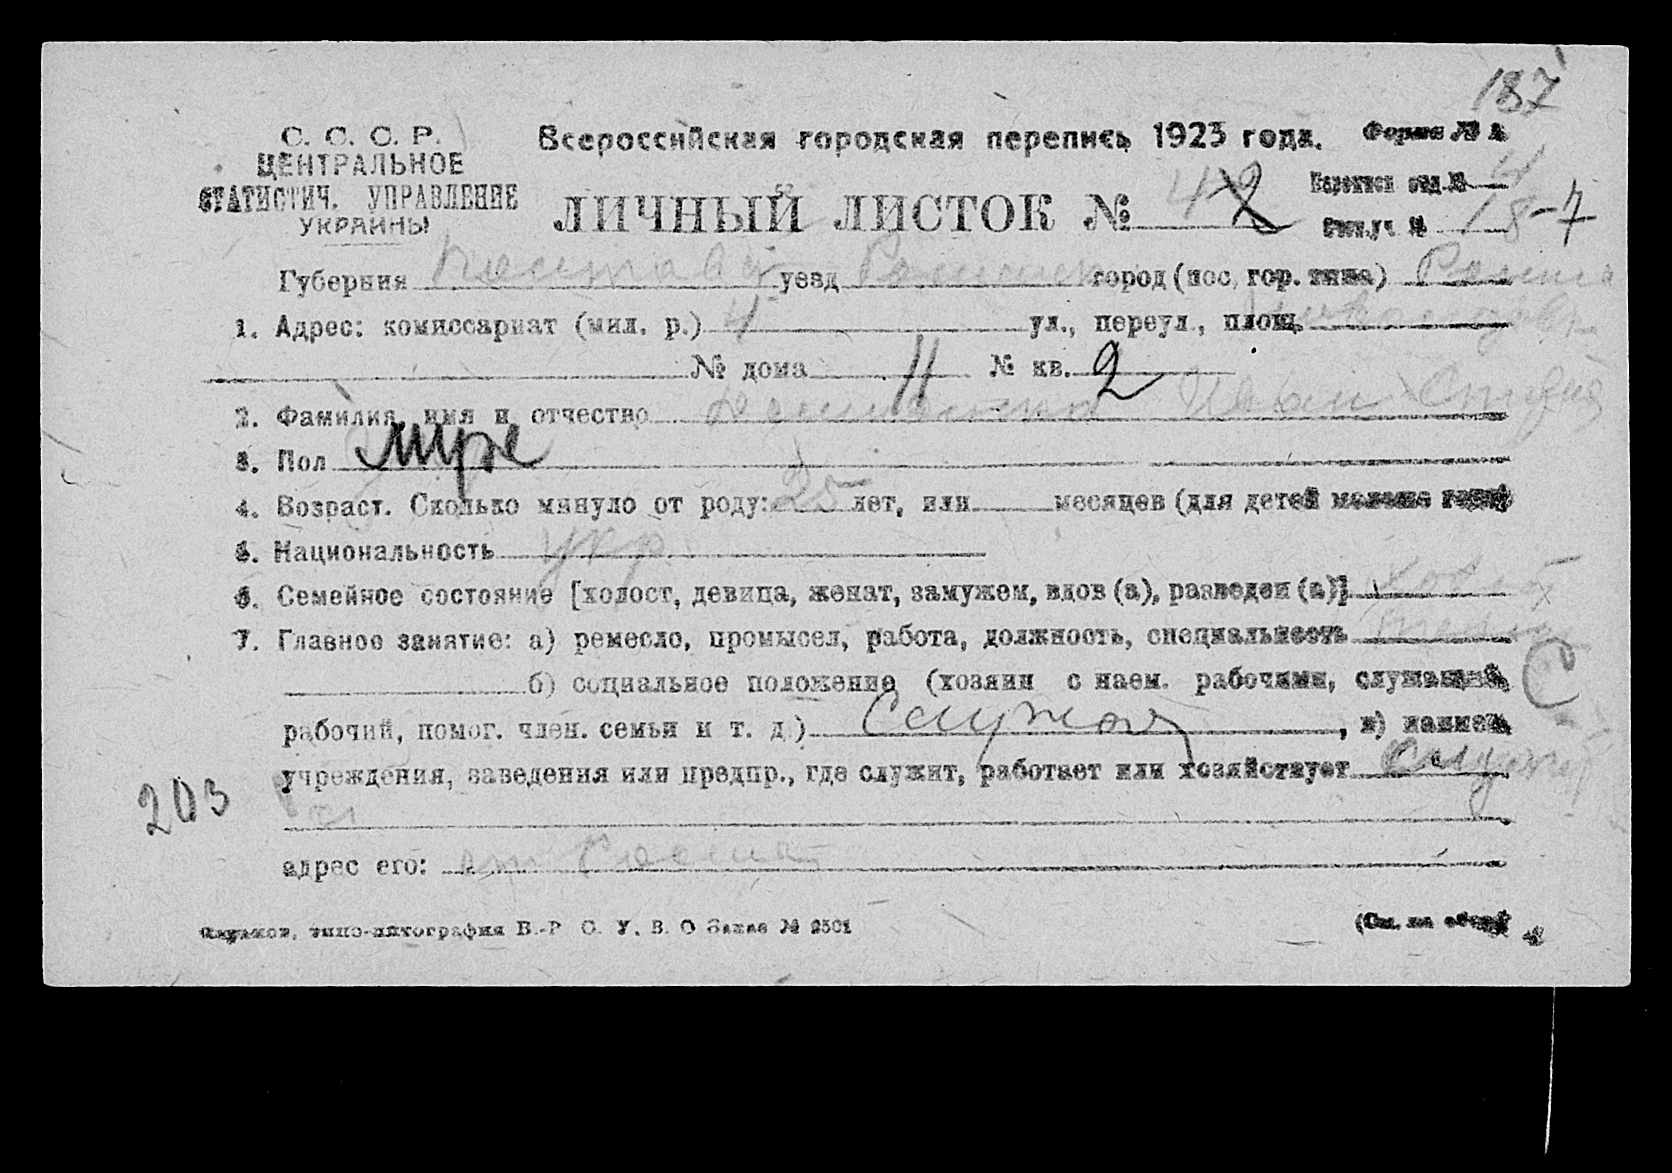 187
С. С. С. Р.
ЦЕНТРАЛЬНОЕ
СТАТИСТИЧ. УПРАВЛЕНИЕ
УКРАИНЫ
Всероссийская городская перепись 1923 года.
Форма № А
ЛИЧНЫЙ ЛИСТОК № 42
Переписн отд. № 4
Счетн. уч. № 18-7
Губерния Полтавск уезд Роменск город (пос. гор. типа) Ромны
1. Адрес: комиссариат (мил. р.) 4 ул., переул., площ.
№ дома 11 № кв. 2
2. Фамилия, имя и отчество Иван
3. Пол муж
4. Возраст. Сколько минуло от роду: 25 лет, или месяцев (для детей моложе года)
5. Национальность укр.
6. Семейное состояние [холост, девица, женат, замужем, вдов (а), разведен (а)] холост
7. Главное занятие: а) ремесло, промысел, работа, должность, специальность
б) социальное положение (хозяин с наем. рабочими, служащий, С
рабочий, помог. член. семьи и т. д.) Служащ, в) наимен.
учреждения, заведения или предпр., где служит, работает или хозяйствует
203
адрес его: ст Ромны
Харьков, типо-литография В.-Р С. У. В. О Заказ № 2501
(См. на обор.)